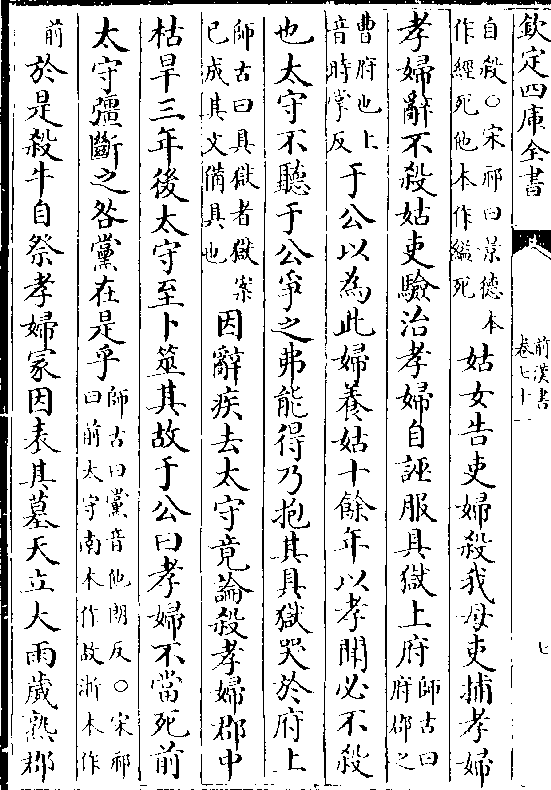 欽定四庫全書
前漢書
卷七十一
七
自殺○宋祁曰景德本
作經死他本作縊死
姑女告吏婦殺我母吏捕孝婦
孝婦辭不殺姑吏驗治孝婦自誣服具獄上府
師古曰
府郡之
曹府也上
音時掌反
于公以為此婦養姑十餘年以孝聞必不殺
也太守不聽于公爭之弗能得乃抱其具獄哭於府上
師古曰具獄者獄案
已成其文備具也
因辭疾去太守竟論殺孝婦郡中
枯旱三年後太守至卜筮其故于公曰孝婦不當死前
太守彊斷之咎黨在是乎
師古曰黨音他朗反○宋祁
曰前太守南本作故浙本作
前
於是殺牛自祭孝婦冢因表其墓天立大雨歲熟郡